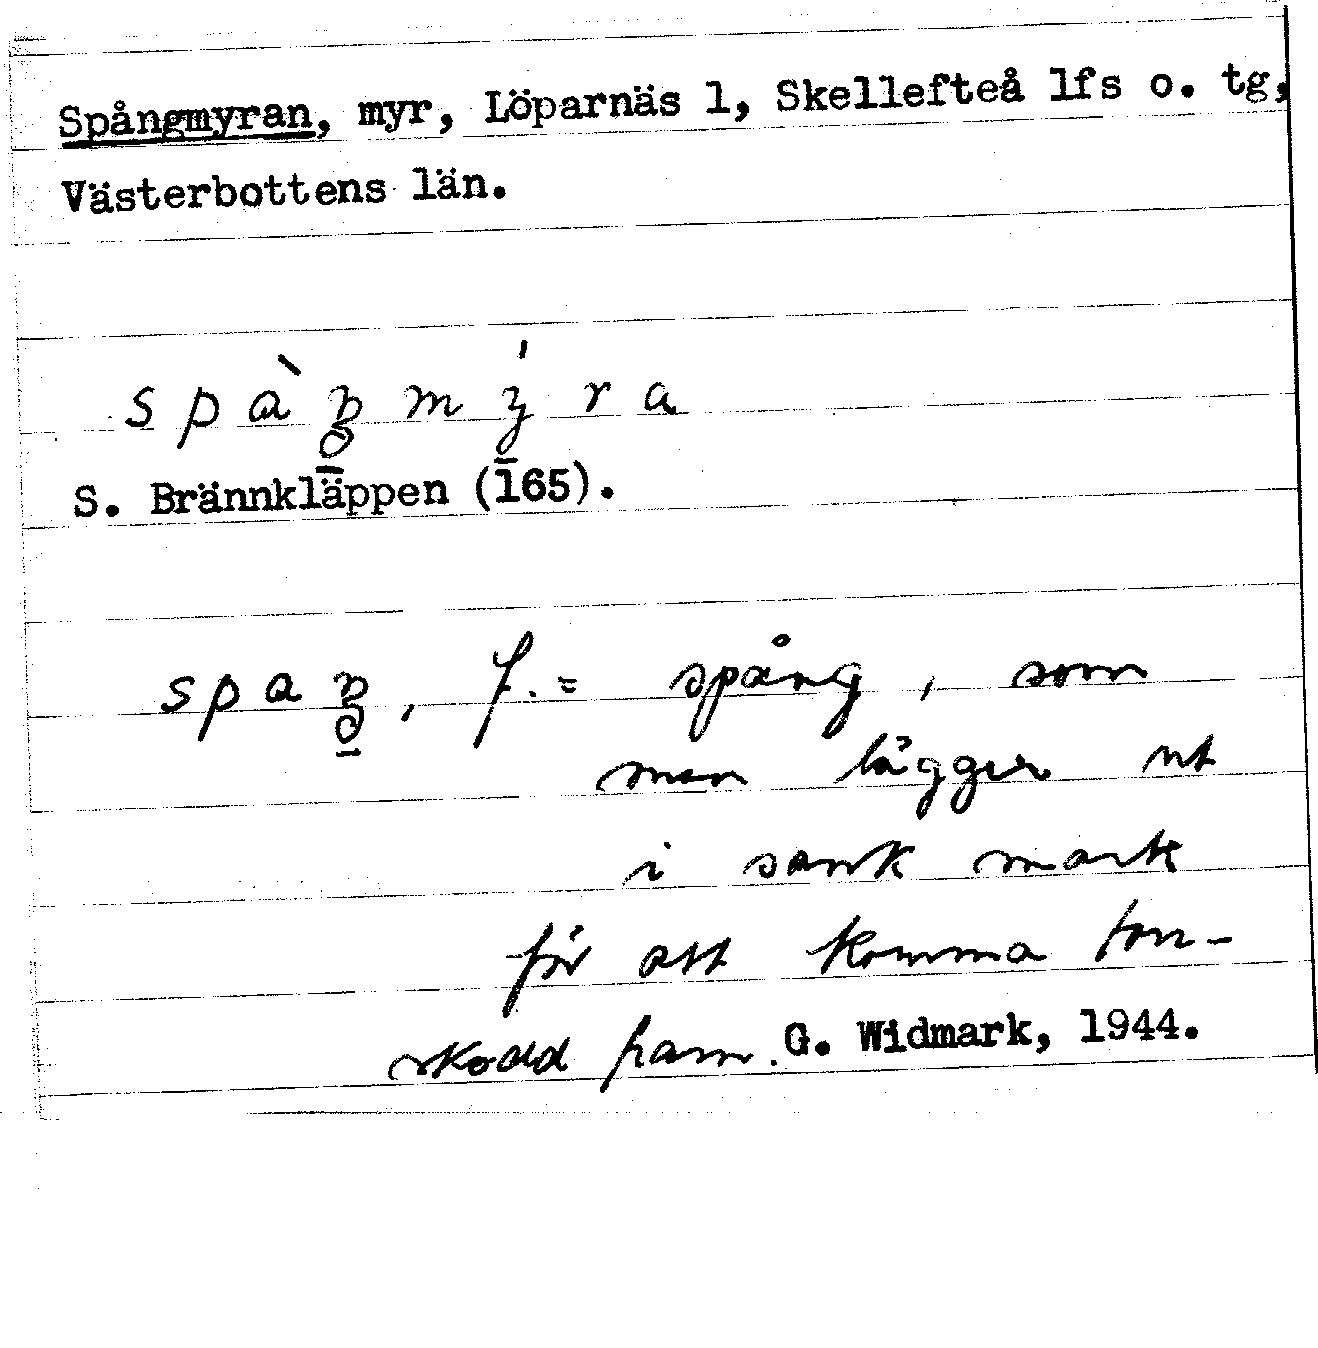 Spångmyran, myr, Löparnäs 1, Skellefteå lfs o. tg,
Västerbottens län.
spàŋmýra
S. Brännkläppen (165).
spaŋ, f. = spång, som
man lägger ut
i sank mark
för att komma torr-
skodd fram. G. Widmark, 1944.